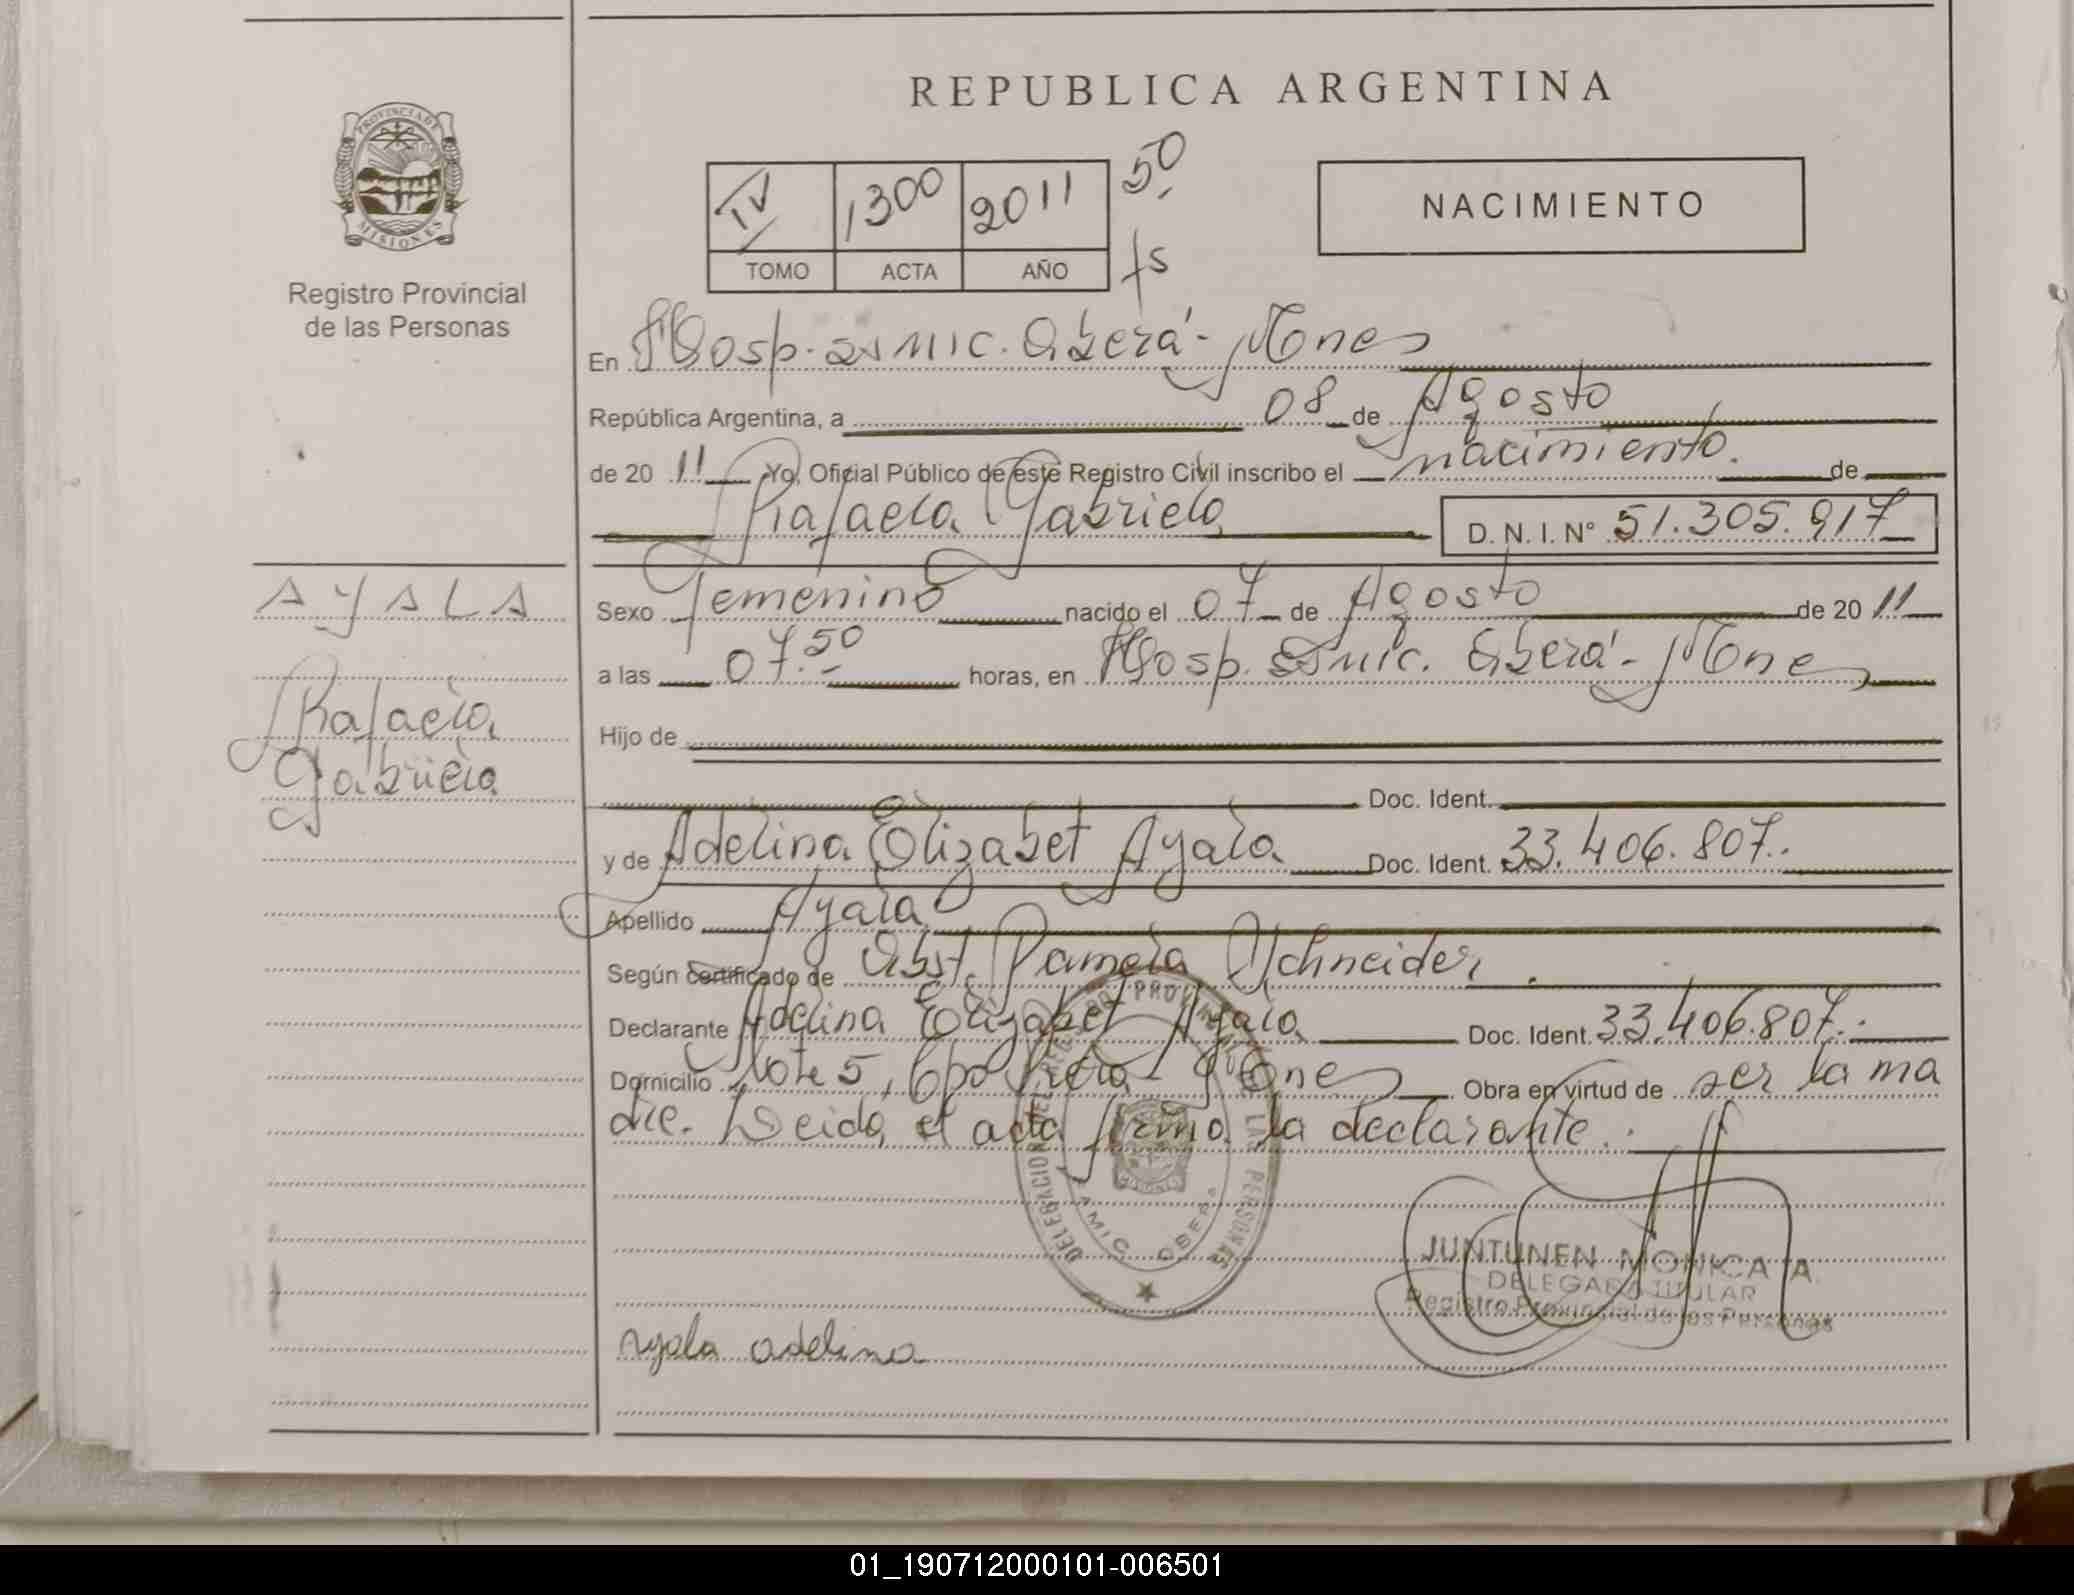 REPUBLICA ARGENTINA
PROVINCIA DE
MISIONES
Registro Provincial
de las Personas
IV 1300 2011 50
TOMO ACTA AÑO fs
NACIMIENTO
En Hosp. SAMIC. Oberá - Mnes
República Argentina, a 08 de Agosto
de 20 11 Yo, Oficial Público de este Registro Civil inscribo el nacimiento. de
Rafaela Gabriela D. N. I. Nº 51.305.917
AYALA
Rafaela
Gabriela
Sexo Femenino nacido el 07 de Agosto de 20 11
a las 07.50 horas, en Hosp. SAMIC. Oberá - Mnes
Hijo de
Doc. Ident.
y de Adelina Elizabet Ayala Doc. Ident. 33.406.807.
Apellido Ayala
Según certificado de Obst. Pamela Schneider.
Declarante Adelina Elizabet Ayala Doc. Ident. 33.406.807.
Domicilio Lote 5, Mnes Obra en virtud de ser la ma
dre. Leida el acta firma la declarante.
DELEGACION REGISTRO PROVINCIAL DE LAS PERSONAS
SAMIC OBERA
JUNTUNEN MONICA A.
DELEGADA TITULAR
Registro Provincial de las Personas
Ayala adelina
01_190712000101-006501